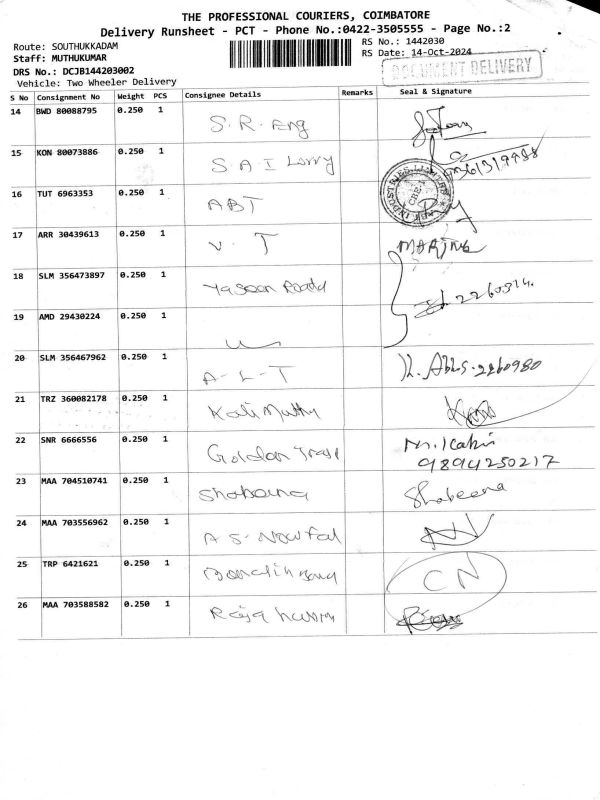 THE PROFESSIONAL COURIERS, COIMBATORE
Delivery Runsheet - PCT - Phone No.:0422-3505555 - Page No.:2
Route: SOUTHUKKADAM
RS No.: 1442030
Staff: MUTHUKUMAR
RS Date: 14-Oct-2024
DRS No.: DCJB144203002
DOCUMENT DELIVERY
Vehicle: Two Wheeler Delivery
S No Consignment No Weight PCS Consignee Details Remarks Seal & Signature
14 BWD 80088795 0.250 1 S.R. Eng
15 KON 80073886 0.250 1 S A I Lorry
16 TUT 6963353 0.250 1 ABT
17 ARR 30439613 0.250 1 V. T
18 SLM 356473897 0.250 1
19 AMD 29430224 0.250 1
20 SLM 356467962 0.250 1 A-L-T 2260980
21 TRZ 360082178 0.250 1 Kali Muthu
22 SNR 6666556 0.250 1 Golden
9894250217
23 MAA 704510741 0.250 1 Shabeena Shabeena
24 MAA 703556962 0.250 1 A S. Nowfal
25 TRP 6421621 0.250 1 CN
26 MAA 703588582 0.250 1 Raja